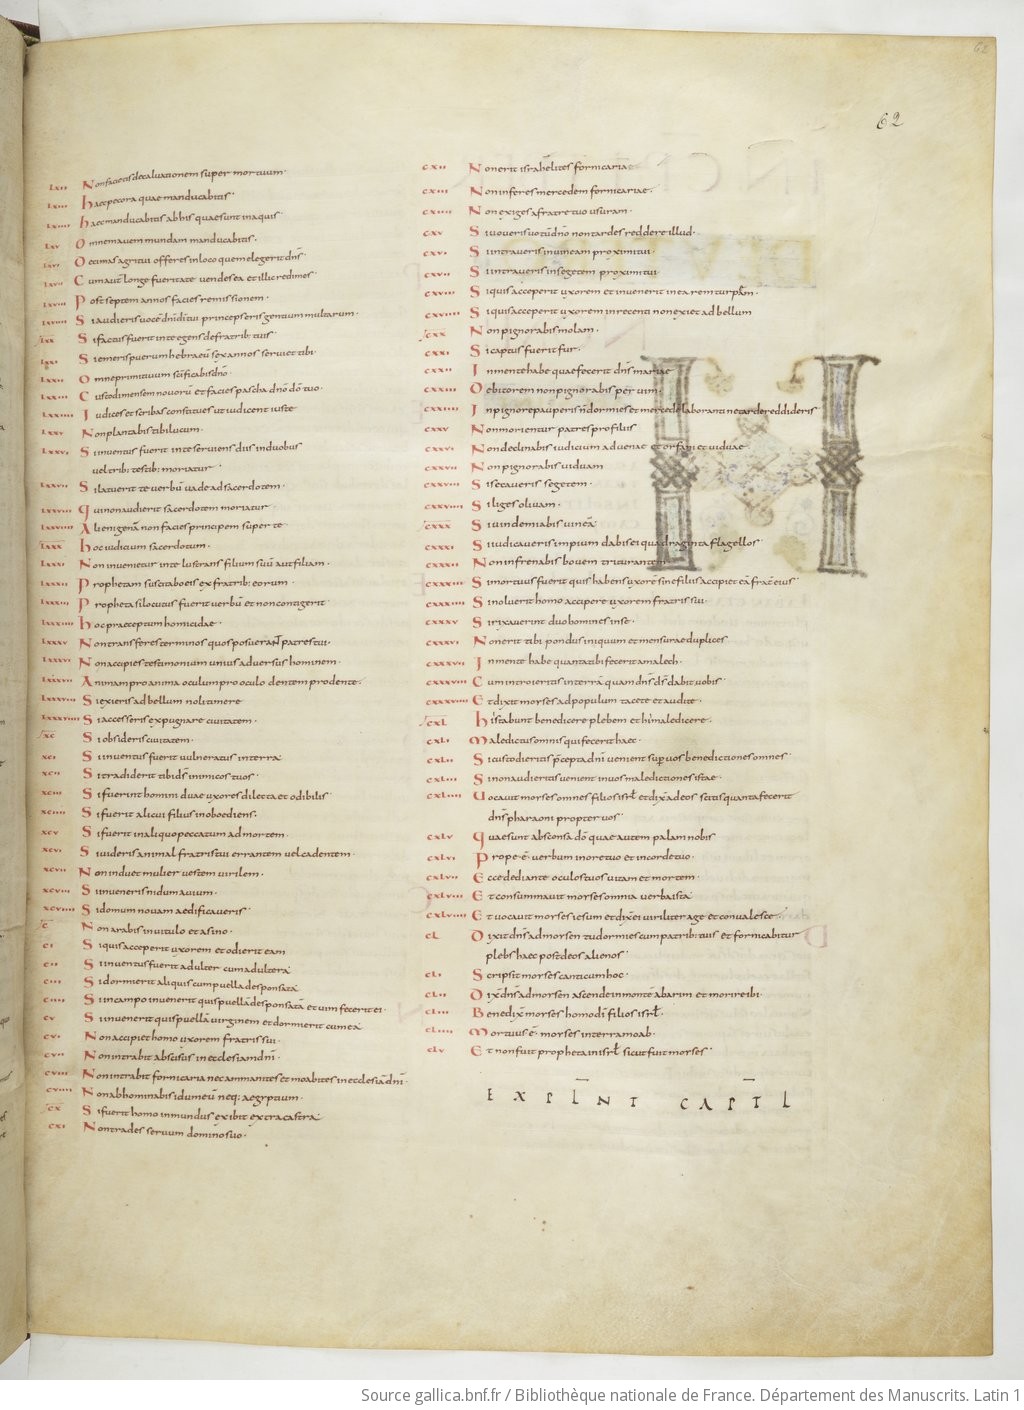 62
62
LXII Non facietis decaluationem super mortuum·
LXIII haec pecora quae manducabitis·
LXIIII haec manducabitis ab his quae sunt in aquis
LXV Omnem auem mundam manducabitis·
LXVI Decimas agri tui offeres in loco quem elegerit dñs
LXVII Cum aut longe fuerit a te uendes ea et illic redimes
LXVIII Post septem annos facies remissionem·
LXVIIII Si audieris uoce dñi di tui princeps eris gentium multarum·
LXX Si factus fuerit in te egens de fratrib· tuis
LXXI Si emeris puerum hebraeu sex annos seruiet tibi·
LXXII Omne primitiuum scificabis dño·
LXXIII Custodi mensem nouoru et facies pascha dno do tuo·
LXXIIII Iudices et scribas constitues ut iudicent iuste
LXXV Non plantabis tibi lucum·
LXXVI Si inuentus fuerit in te seruiens diis in duobus
uel trib· testib· moriatur·
LXXVII Si latuerit te uerbu uade ad sacerdotem·
LXXVIII qui non audierit sacerdotem moriatur
LXXVIIII Alienigena non facies principem super te
LXXX hoc iudicium sacerdotum·
LXXXI Non inuenietur in te lustrans filium suu aut filiam·
LXXXII Prophetam suscitabo eis ex fratrib· eorum·
LXXXIII Propheta si locutus fuerit uerbu et non contigerit
LXXXIIII hoc praeceptum homicidae·
LXXXV Non transferes terminos quos posuerant patres tui·
LXXXVI Non accipies testimonium unius aduersus hominem·
LXXXVII Animam pro anima oculum pro oculo dentem pro dente·
LXXXVIII Si exieris ad bellum noli timere
LXXXVIIII Si accesseris expugnare ciuitatem·
XC Si obsideris ciuitatem·
XCI Si inuentus fuerit uulneratus in terra
XCII Si tradiderit tibi ds inimicos tuos·
XCIII Si fuerint homini duae uxores dilecta et odibilis·
XCIIII Si fuerit alicui filius inoboediens·
XCV Si fuerit in aliquo peccatum ad mortem·
XCVI Si uideris animal fratris tui errantem uel cadentem·
XCVII Non induet mulier uestem uirilem·
XCVIII Si inueneris nidum auium·
XCVIIII Si domum nouam aedificaueris·
C Non arabis in uitulo et asino·
CI Si quis acceperit uxorem et odierit eam
CII Si inuentus fuerit adulter cum adultera
CIII Si dormierit aliquis cum puella desponsata
CIIII Si in campo inuenerit quis puella desponsata et uim fecerit ei·
CV Si inuenerit quis puella uirginem et dormierit cum ea·
CVI Non accipiet homo uxorem fratris sui·
CVII Non intrabit abscisus in ecclesiam dñi·
CVIII Non intrabit fornicaria nec ammanites et moabites in ecclesia dñi·
CVIIII Non abhominabis idumeu neq· aegyptium·
CX Si fuerit homo inmundus exibit extra castra
CXI Non trades seruum domino suo·
CXII Non erit israhelites fornicaria·
CXIII Non inferes mercedem fornicariae·
CXIIII Non exiges a fratre tuo usuram·
CXV Si uoueris uotu dno non tardes reddere illud·
CXVI Si intraueris in uineam proximi tui·
CXVII Si intraueris in segetem proximi tui·
CXVIII Si quis acceperit uxorem et inuenerit in ea rem turpam·
CXVIIII Si quis acceperit uxorem in recenti non exiet ad bellum
CXX Non pignorabis molam·
CXXI Si captus fuerit fur·
CXXII In mente habe quae fecerit dñs mariae
CXXIII Debitorem non pignorabis per uim·
CXXIIII In pignore pauperis ñ dormies et mercede laboranti ne tarde reddideris
CXXV Non morientur patres pro filiis
CXXVI Non declinabis iudicium aduenae et orfani et uiduae
CXXVII Non pignorabis uiduam
CXXVIII Si secaueris segetem·
CXXVIIII Si liges oliuam·
CXXX Si uindemiabis uinea
CXXXI Si iudicaueris impium dabis ei quadraginta flagellos·
CXXXII Non infrenabis bouem triturantem
CXXXIII Si mortuus fuerit quis habens uxore sine filiis accipiet ea frater eius·
CXXXIIII Si noluerit homo accipere uxorem fratris sui·
CXXXV Si rixauerint duo homines in se·
CXXXVI Non erit tibi pondus iniquum et mensurae duplices
CXXXVII In mente habe quanta tibi fecerit amalech·
CXXXVIII Cum introieritis in terra quam dñs ds dabit uobis·
CXXXVIIII Et dixit morses ad populum tacete et audite·
CXL hi stabunt benedicere plebem et hi maledicere·
CXLI Maledictus omnis qui fecerit haec·
CXLII Si custodieritis pcepta dñi uenient sup uos benedictiones omnes·
CXLIII Si non audieritis uenient in uos maledictiones istae·
CXLIIII Uocauit morses omnes filios isrl et dix ad eos scitis quanta fecerit
dñs pharaoni propter uos·
CXLV quae sunt absconsa do quae autem palam nobis
CXLVI Prope e uerbum in ore tuo et in corde tuo·
CXLVII Ecce dedi ante oculos tuos uitam et mortem·
CXLVIII Et consummauit morses omnia uerba ista
CXLVIIII Et uocauit morses iesum et dix ei uiriliter age et conualesce·
CL Dixit dñs ad morsen tu dormies cum patrib· tuis et fornicabitur
plebs haec post deos alienos·
CLI Scripsit morses canticum hoc·
CLII Dix dñs ad morsen ascende in monte abarim et morire ibi·
CLIII Benedix morses homo di filios isrl·
CLIIII Mortuus e morses in terra moab·
CLV Et non fuit propheta in isrl sicut fuit morses·
EXPLNT CAPTL
Source gallica.bnf.fr / Bibliothèque nationale de France. Département des Manuscrits. Latin 1